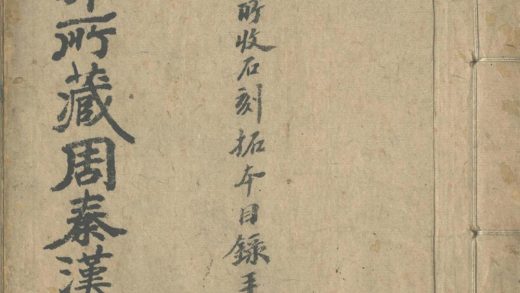 所藏周秦漢
所收石刻拓本目錄手